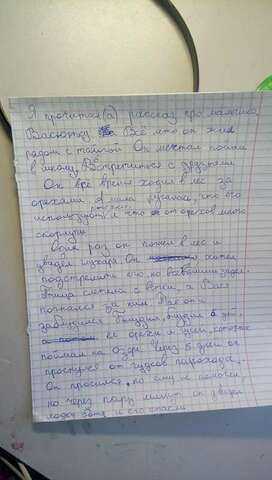 Я прочитал(а) рассказ про мальчика
Васютку. Всё что он жил
рядом с тайгой. Он мечтал пойти
в школу. Встретиться с друзьями.
Он всё время ходил в лес за
орехами. А мама ругалась, что его
используют и что от орехов мало
скорлупы
Один раз он пошел в лес и
увидел глухаря. Он хотел
подстрелить его, но
Птица слетела с ветки, а Вася
погнался за ним. После он
заблудился.
орехи и уток, которых
поймал на озере. Через 5 дней он
проснулся от гудков парохода.
Он просился, но ему не помогли,
но через пару минут он увидел
лодку и его спасли